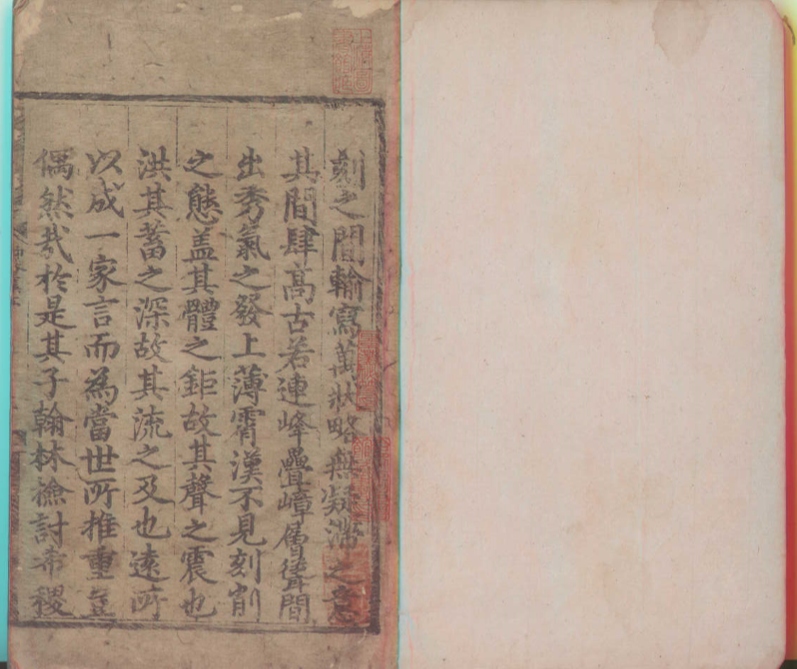 刻之間輸寫萬狀略無疑滯之意
其間肆高古若連峰疊嶂層聳間
出秀氣之發上薄霄漢不見刻削
之態盖其體之鉅故其聲之震也
洪其蓄之深故其流之及也遠所
以成一家言而為當世所推重豈
偶然哉於是其子翰林檢討希稷